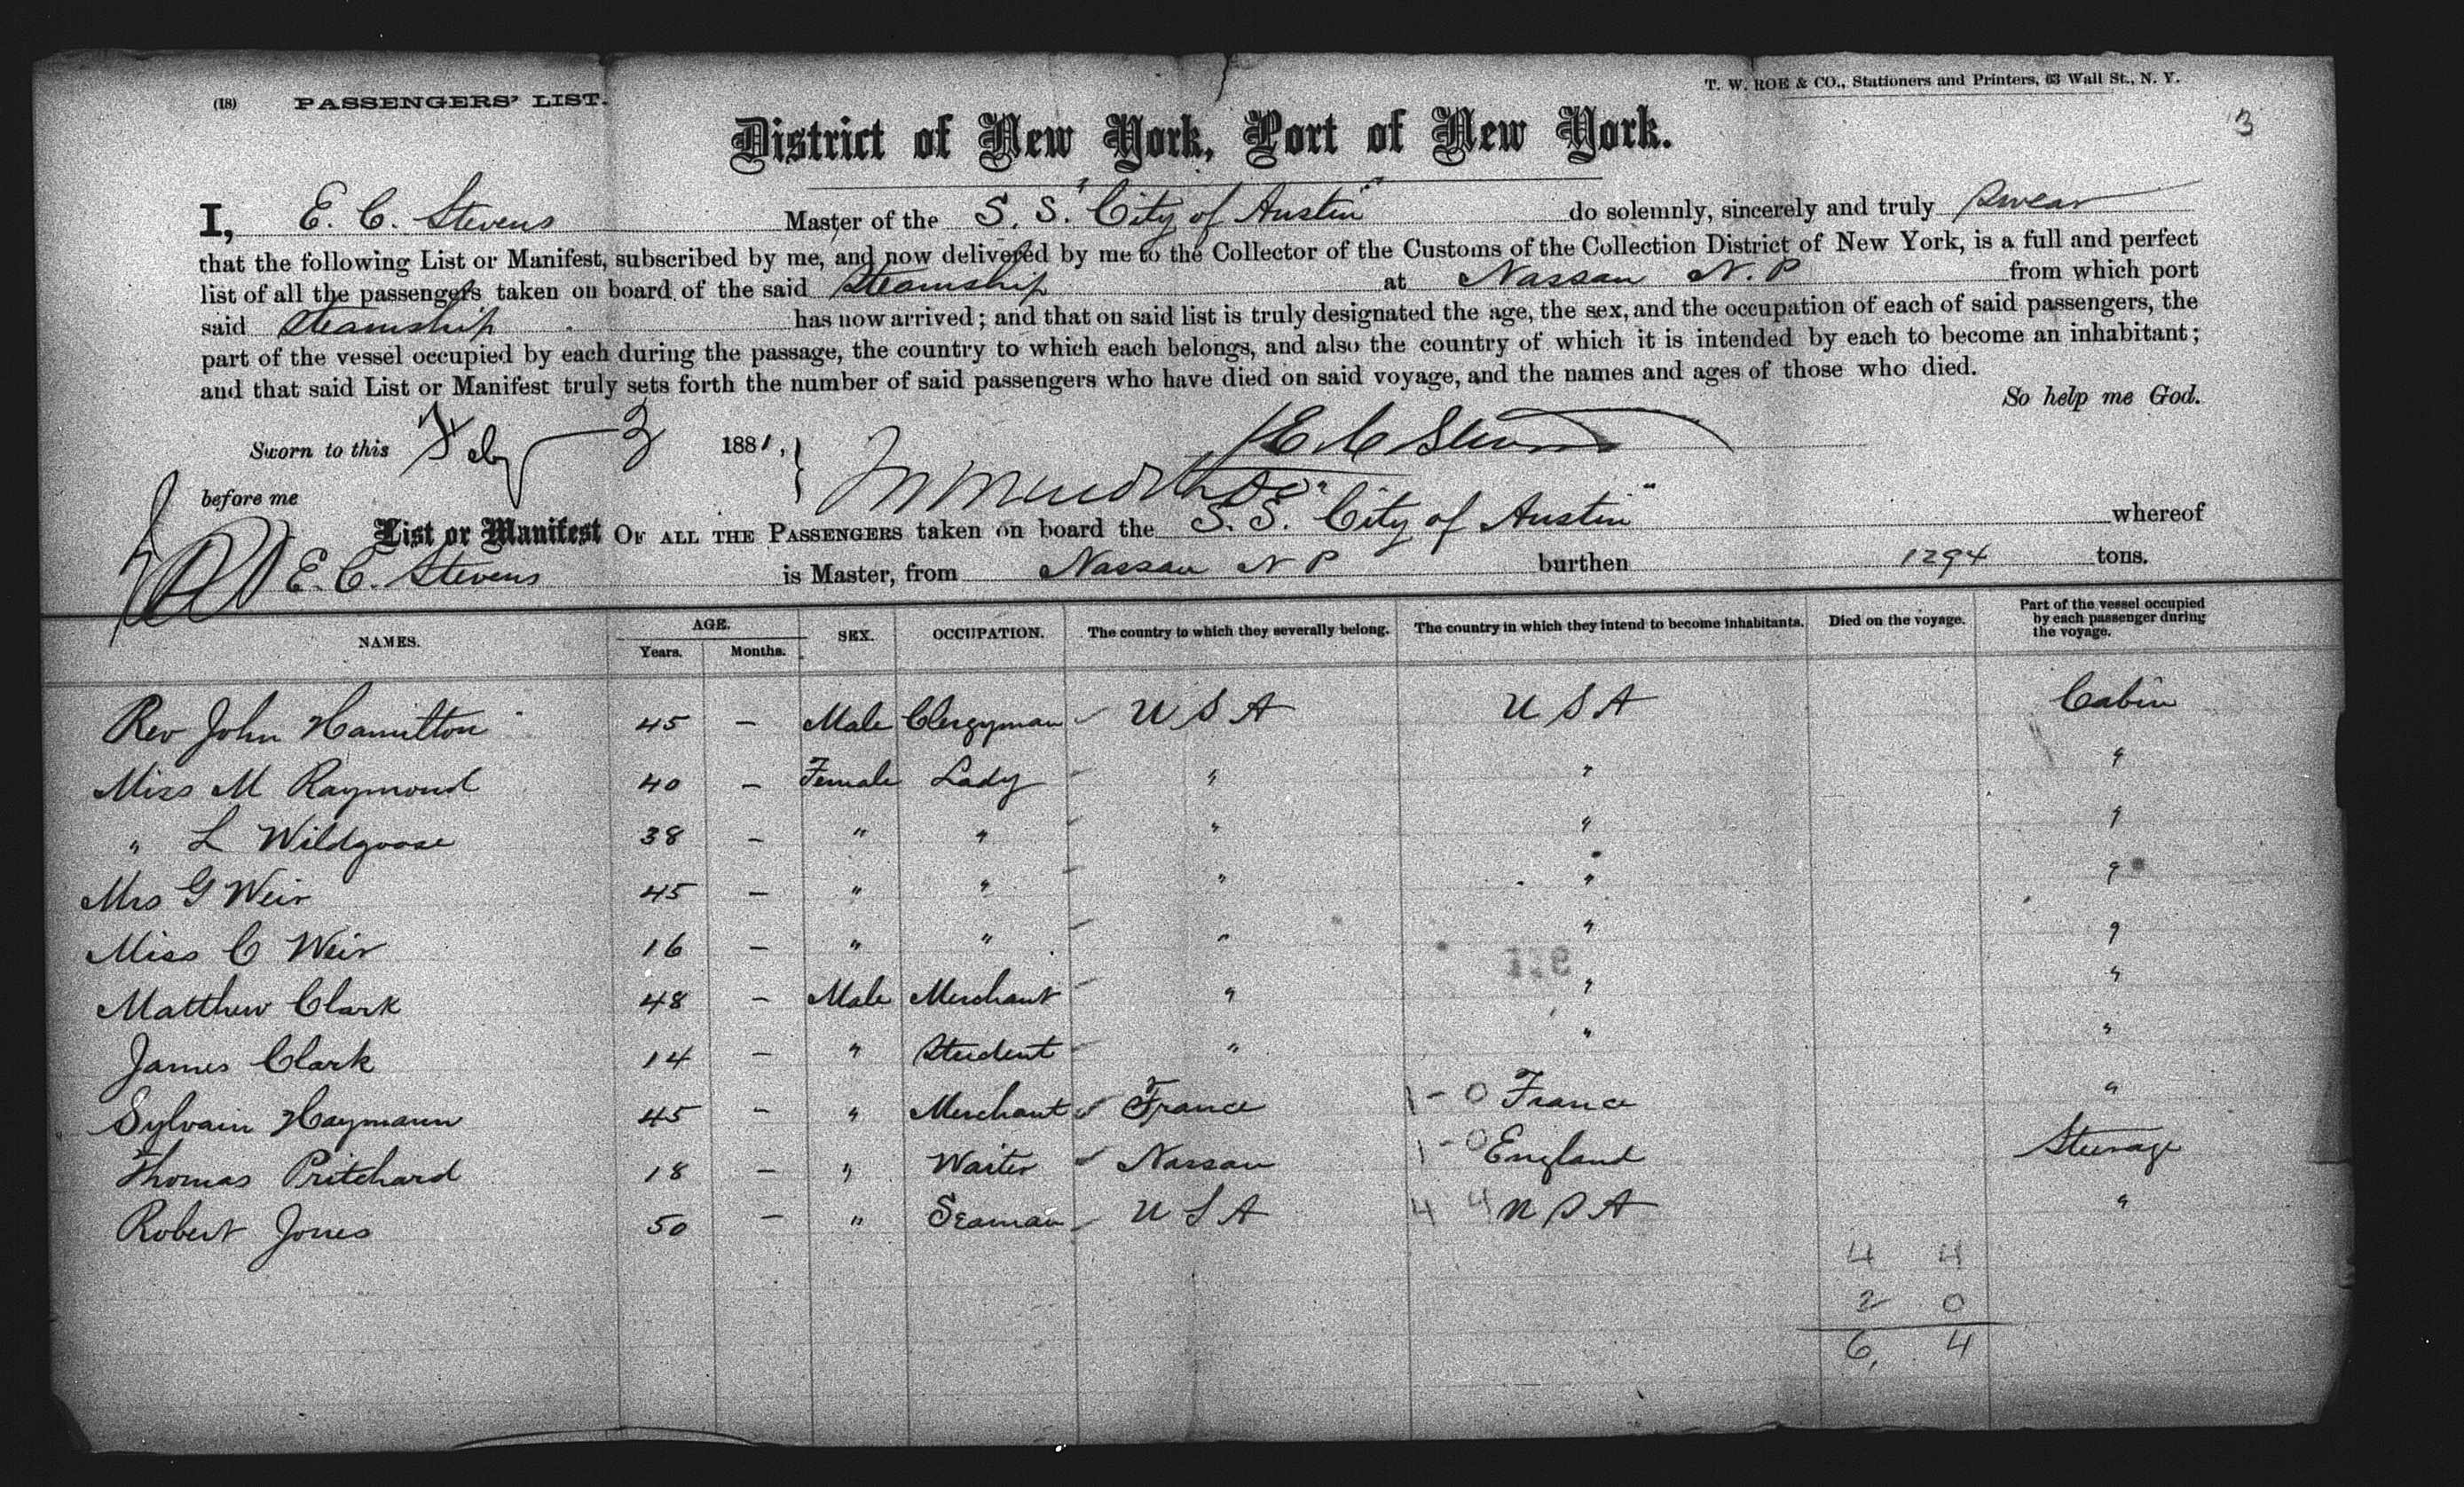 (18) PASSENGERS' LIST.
T. W. ROE & CO., Stationers and Printers, 63 Wall St., N. Y.
3
District of New York, Port of New York.
I, E. C. Stevens Master of the S. S. "City of Austin" do solemnly, sincerely and truly swear
that the following List or Manifest, subscribed by me, and now delivered by me to the Collector of the Customs of the Collection District of New York, is a full and perfect
list of all the passengers taken on board of the said Steamship at Nassau N. P from which port
said Steamship has now arrived; and that on said list is truly designated the age, the sex, and the occupation of each of said passengers, the
part of the vessel occupied by each during the passage, the country to which each belongs, and also the country of which it is intended by each to become an inhabitant;
and that said List or Manifest truly sets forth the number of said passengers who have died on said voyage, and the names and ages of those who died.
So help me God.
Sworn to this Feby 3 1881, E C Stevens
before me
List or Manifest OF ALL THE PASSENGERS taken on board the S. S. City of Austin" whereof
E. C. Stevens is Master, from Nassau N P burthen 1294 tons.
NAMES. AGE. Years. Months. SEX. OCCUPATION. The country to which they severally belong. The country in which they intend to become inhabitants. Died on the voyage. Part of the vessel occupied by each passenger during the voyage.
Rev John Hamilton 45 – Male Clergyman U S A U S A Cabin
Miss M Raymond 40 – Female Lady " " "
" L Wildgoose 38 – " " " " "
Mrs G Weir 45 – " " " " "
Miss C Weir 16 – " " " " "
Matthew Clark 48 – Male Merchant " " "
James Clark 14 – " Student " " "
Sylvain Haymann 45 – " Merchant France 1 - 0 France "
Thomas Pritchard 18 – " Waiter Nassau 1 - 0 England Steerage
Robert Jones 50 – " Seaman U S A 4 4 U S A "
4 4
2 0
6, 4